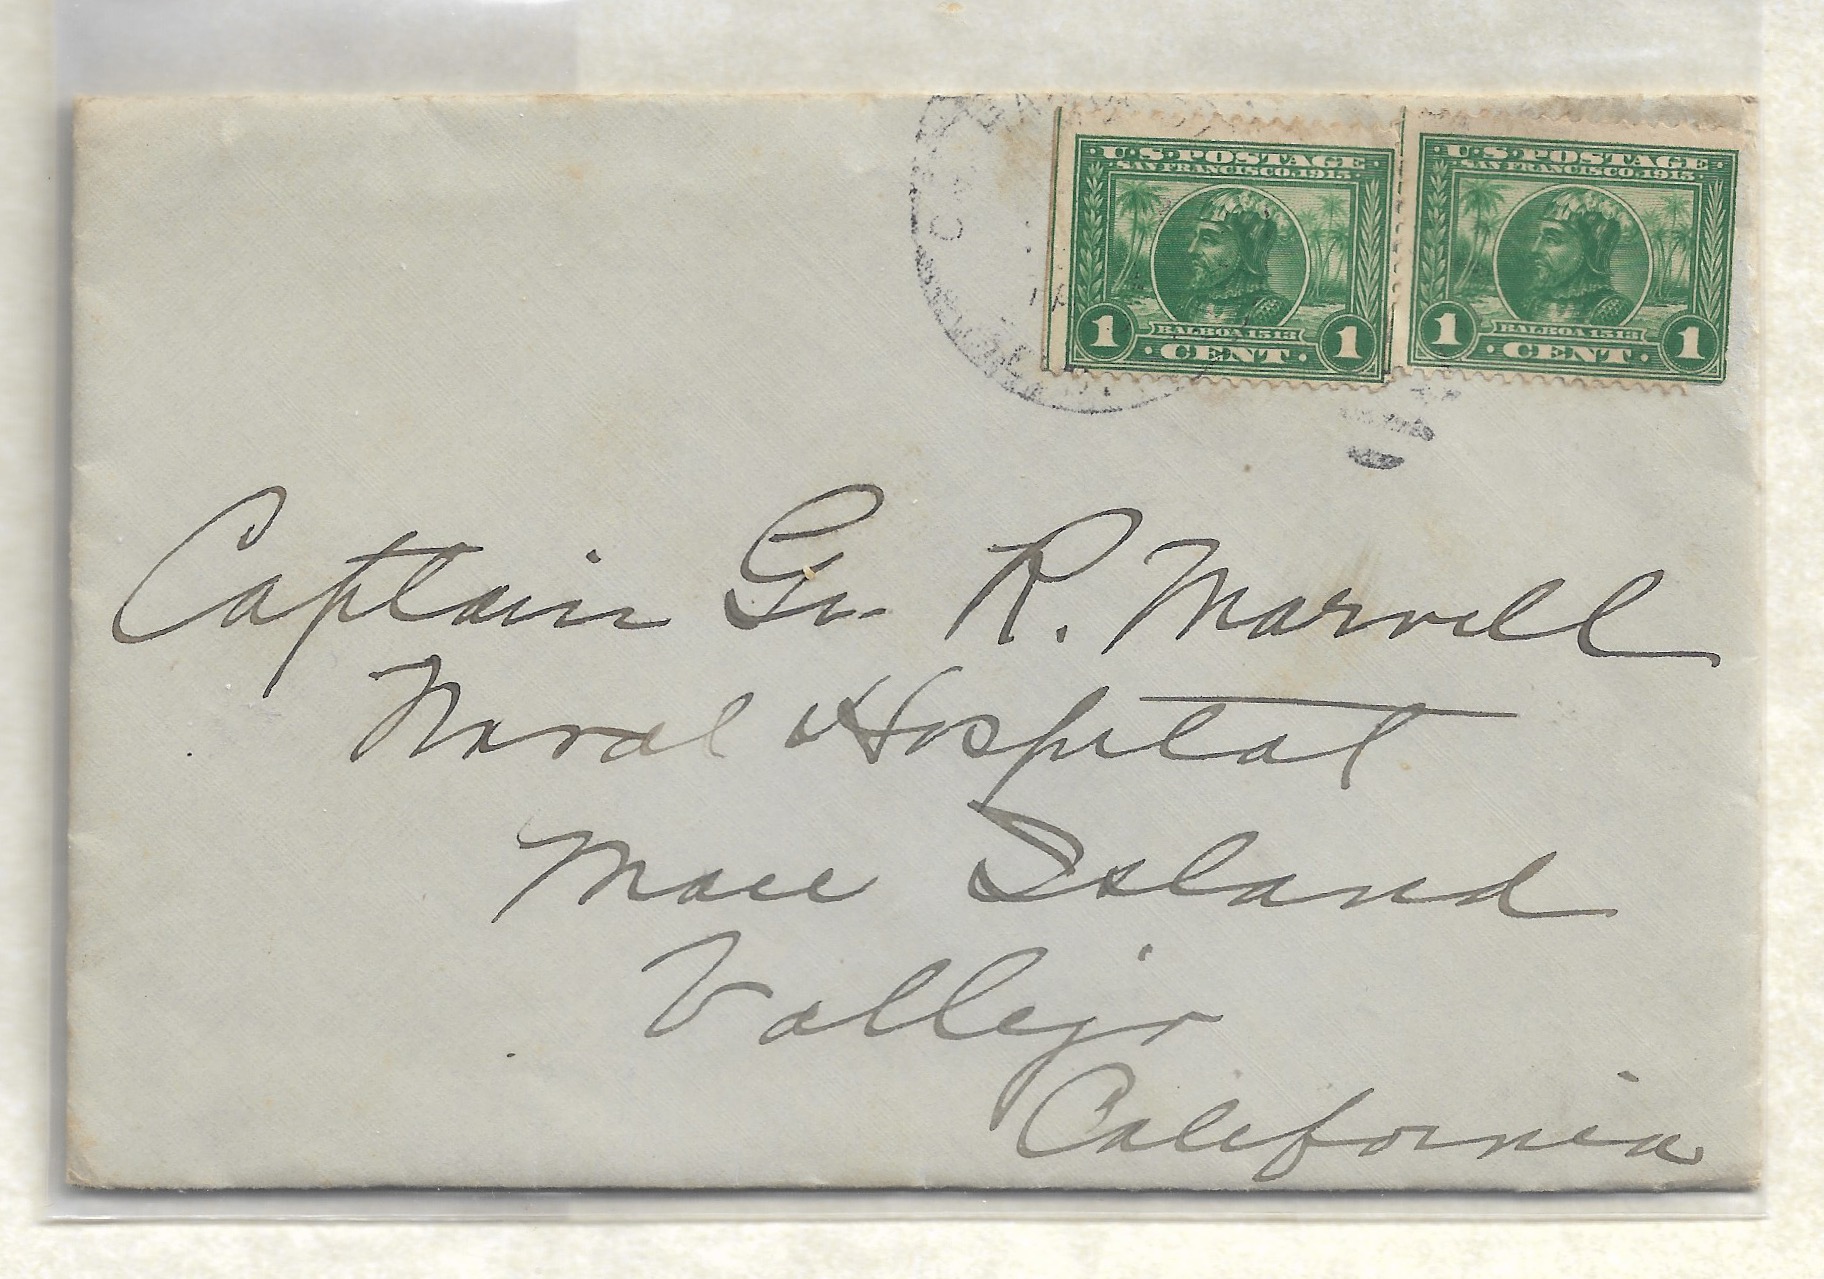 U.S. POSTAGE
SAN FRANCISCO, 1915
1 BALBOA 1513 1
CENT
U.S. POSTAGE
SAN FRANCISCO, 1915
1 BALBOA 1513 1
CENT
Captain Geo R. Marvell
Naval Hospital
Mare Island
Vallejo
California